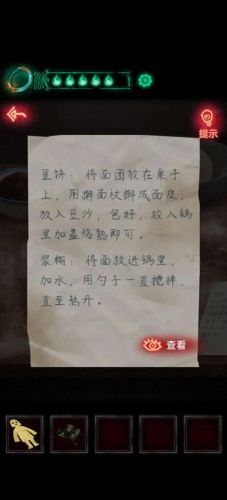 提示
豆饼：将面团放在桌子
上，用擀面杖擀成面皮，
放入豆沙，包好，放入锅
里加盖烙熟即可。
浆糊：将面放进锅里，
加水，用勺子一直搅拌，
直至熬开。
查看